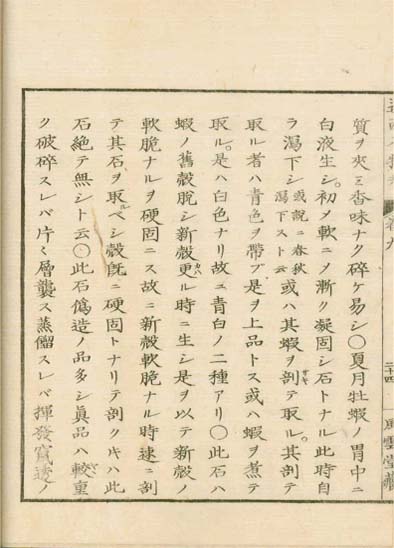 質ヲ夾ミ香味ナク碎ケ易シ〇夏月牡蝦ノ胃中ニ
白液生シ。初メ軟ニノ漸ク凝固シ石トナル此時自
ラ瀉下シ或説ニ春秋瀉下スト云或ハ其蝦ヲ剖テ取ル。其剖テ
取ル者ハ青色ヲ帶ブ是ヲ上品トス或ハ蝦ヲ煮テ
取ル。是ハ白色ナリ故ニ青白ノ二種アリ〇此石ハ
蝦ノ舊殼脫シ新殼更ル時ニ生シ是ヲ以テ新殼ノ
軟脆ナルヲ硬固ニス故ニ新殼軟脆ナル時速ニ剖
テ其石ヲ取ルベシ殼旣ニ硬固トナリテ剖クキハ此
石絕テ無シト云〇此石僞造ノ品多シ眞品ハ較重
ク破碎スレバ片〻層襲ス蒸餾スレバ揮發竄透ノ
二十四
風雲堂藏